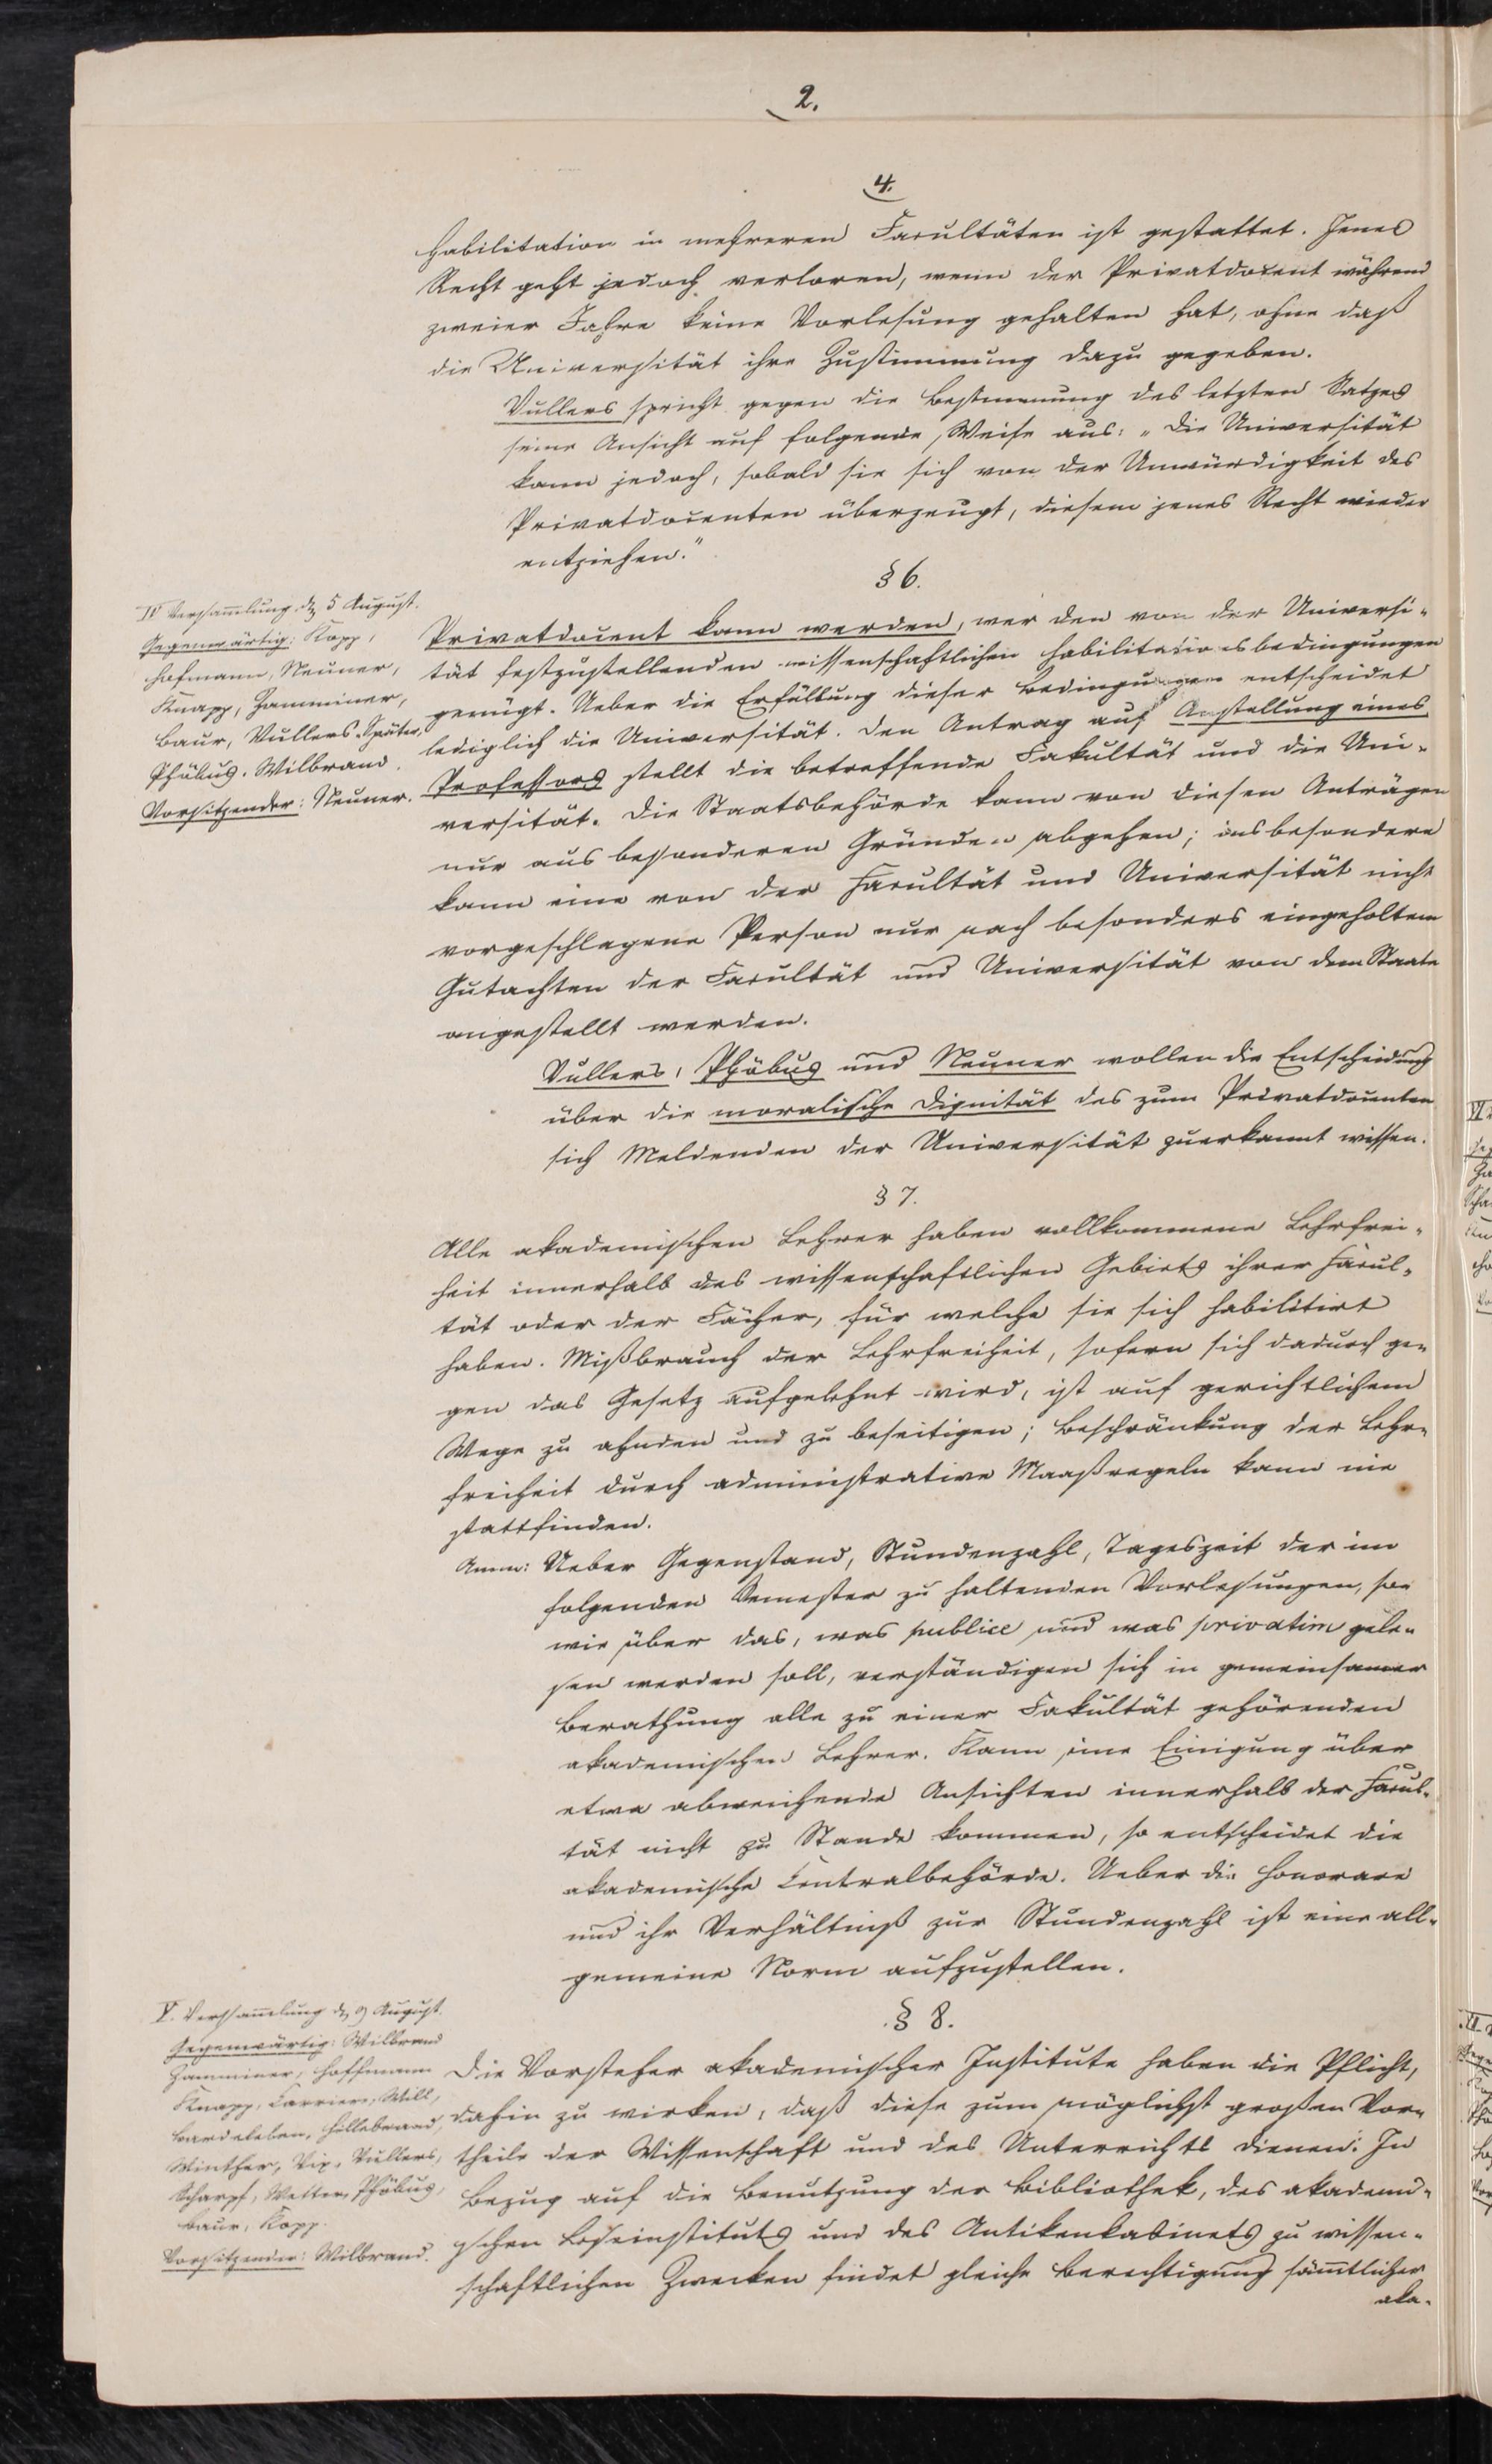 2.
4.
Habilitation in mehreren Facultäten ist gestattet. Jenes
Recht geht jedoch verloren, wenn der Privatdocent während
zweier Jahre keine Vorlesung gehalten hat, ohne daß
die Universität ihre Zustimmung dazu gegeben.
Vullers spricht gegen die Bestimmung des letzten Satzes
seine Ansicht auf folgende Weise aus: „Die Universität
kann jedoch, sobald sie sich von der Unwürdigkeit des
Privatdocenten überzeugt, diesem jenes Recht wieder
entziehen."
§ 6.
IV Versam̅lung d. 5 August.
Gegenwärtig: Kopp,
Hofmann, Neuner,
Knapp, Zamminer,
Baur, Vullers. Später,
Phöbus. Wilbrand.
Vorsitzender: Neuner.
Privatdocent kann werden, wer den von der Universi-
tät festzustellenden wissenschaftlichen Habilitationsbedingungen
genügt. Ueber die Erfüllung dieser Bedingungen entscheidet
lediglich die Universität. Den Antrag auf Anstellung eines
Professors stellt die betreffende Fakultät und die Uni-
versität. Die Staatsbehörde kann von diesen Anträgen
nur aus besonderen Gründen abgehen; insbesondere
kann eine von der Facultät und Universität nicht
vorgeschlagene Person nur nach besonders eingeholtem
Gutachten der Facultät und Universität von dem Staate
angestellt werden.
Vullers, Phöbus und Neuner wollen die Entscheidung
über die moralische Dignität des zum Privatdocenten
sich Meldenden der Universität zuerkannt wissen.
§ 7.
Alle akademischen Lehrer haben vollkommene Lehrfrei-
heit innerhalb des wissenschaftlichen Gebiets ihrer Facul-
tät oder der Fächer, für welche sie sich habilitirt
haben. Mißbrauch der Lehrfreiheit, sofern sich dadurch ge-
gen das Gesetz aufgelehnt wird, ist auf gerichtlichem
Wege zu ahnden und zu beseitigen; Beschränkung der Lehr-
freiheit durch administrative Maaßregeln kann nie
stattfinden.
Anm: Ueber Gegenstand, Stundenzahl, Tageszeit der im
folgenden Semester zu haltenden Vorlesungen, so-
wie über das, was publice und was privatim gele-
sen werden soll, verständigen sich in gemeinsamer
Berathung alle zu einer Fakultät gehörenden
akademischen Lehrer. Kann eine Einigung über
etwa abweichende Ansichten innerhalb der Facul-
tät nicht zu Stande kommen, so entscheidet die
akademische Centralbehörde. Ueber die Honorare
und ihr Verhältniß zur Stundenzahl ist eine all-
gemeine Norm aufzustellen.
§ 8.
V. Versam̅lung d. 9 August.
Gegenwärtig: Wilbrand
Zamminer, Hoffmann
Knapp, Carriere, Will,
Bardeleben, Hillebrand,
Winther, Vix, Vullers,
Scharpf, Wetter, Phöbus,
Baur, Kopp.
Vorsitzender: Wilbrand.
Die Vorsteher akademischer Institute haben die Pflicht,
dahin zu wirken, daß diese zum möglichst großen Vor-
theile der Wissenschaft und des Unterrichts dienen. In
Bezug auf die Benutzung der Bibliothek, des akademi-
schen Leseinstituts und des Antikenkabinets zu wissen-
schaftlichen Zwecken findet gleiche Berechtigung säm̅tlicher
aka-